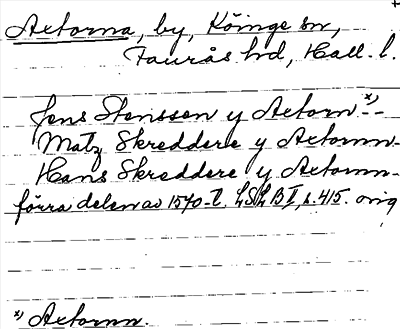 Axtorna, by, Köinge sn,
Faurås hd, Hall. l.
Jens Stenssen y Axtorn x)-
Matz Skreddere y Axtornn-
Hans Skreddere y Axtornn-
förra delen av 1570-t. LSLB I, s. 415. orig
x) Axtornn.